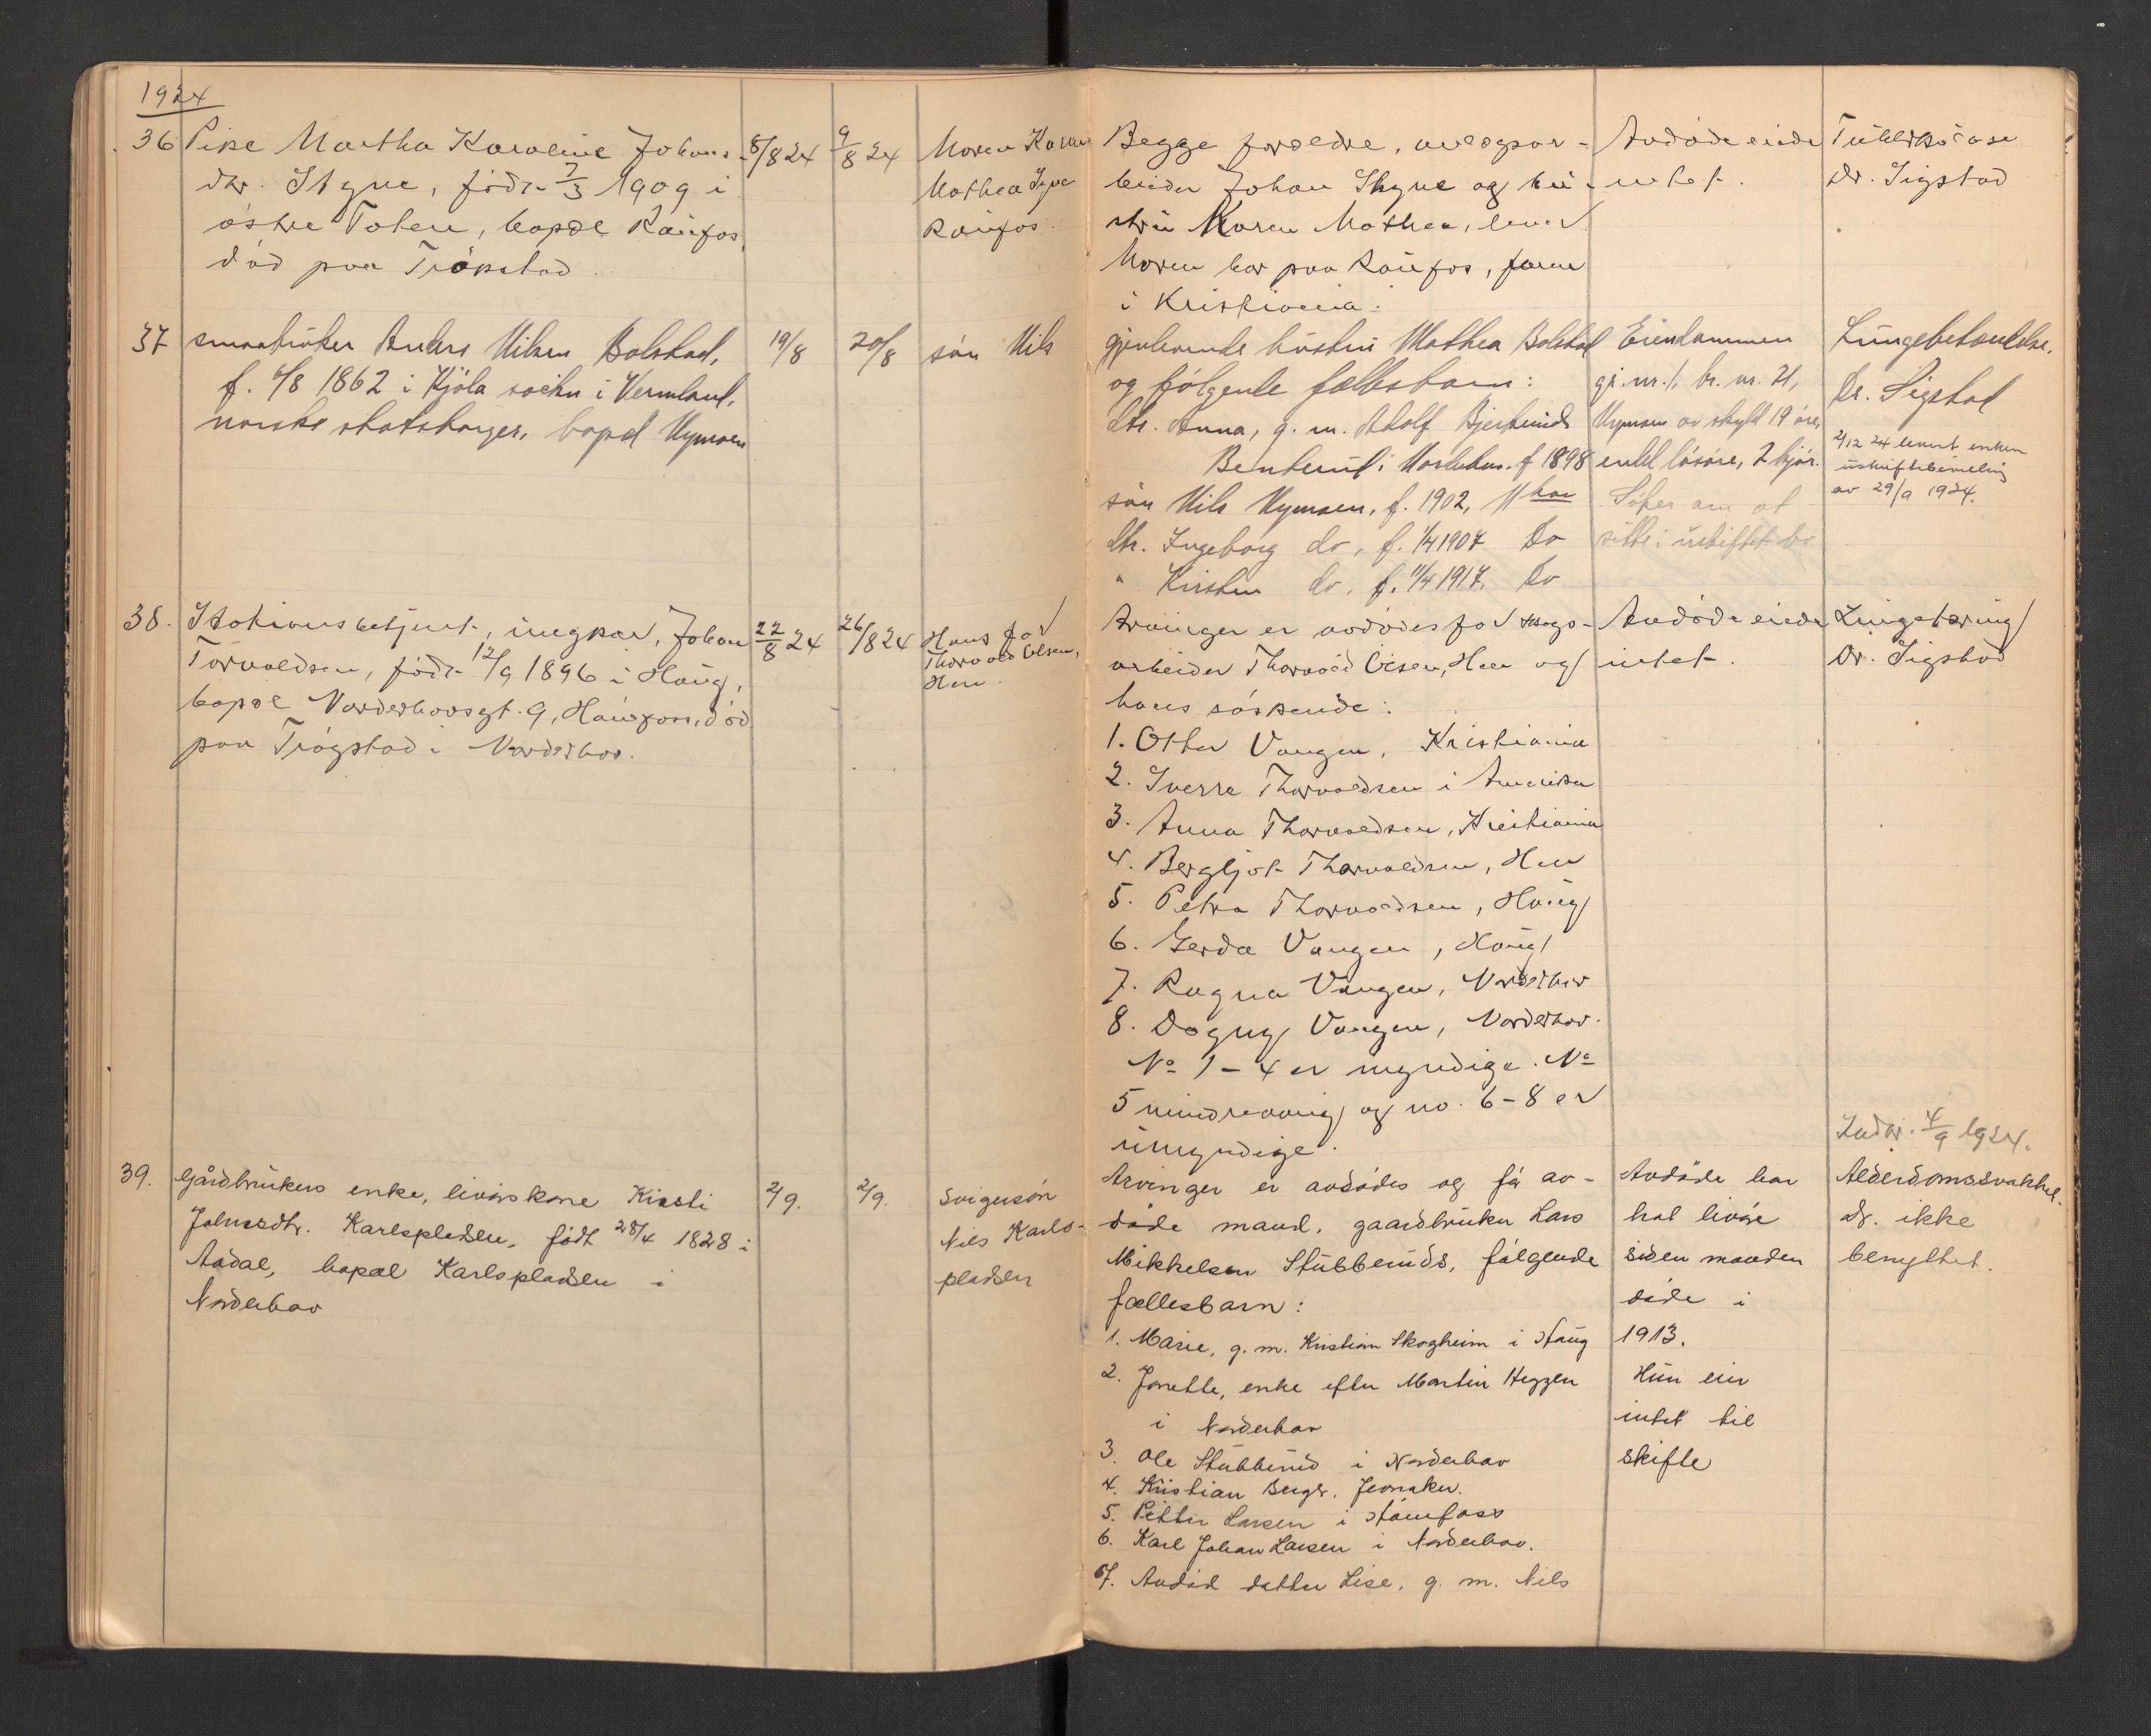 1924
36 Pike Martha Karoline Johans-
dtr. Stgne, födt 7/3 1909 i
östre Toten, bopæl Raufos,
död paa Trökstad.
8/8 24
9/8 24
Moren Karen
Mathea
Raufos.
Begge foræeldre,
Johan og hu-
stru Karen Mathea, lever
Moren bor paa Raufos, faren
i Kristiania.
Avdöde eiede
intet.
Tuberkulose
Dr. Sigstad
37 smaabruker Anders Nilsen Bolstad,
f. 6/8 1862 i Kjöla sockn i Vermland,
norsk statsborger, bopæl Nymoen
19/8
20/8
sön Nils
gjenlevende hustru Mathea Bolstad
og följende fællesbarn:
dtr. Anna, g. m. Adolf
f. 1898
sön Nils Nymoen, f. 1902, her
dtr. Ingeborg do, f. 1/4 1907 Do
" Kirsten do, f. 11/4 1917. Do
Eiendommen
gr. nr. 1, br. nr. 21,
Nymoen av skyld 19 öre,
endel lösöre, 2 kjör.
Söker om at
sitte i uskiftet bo
Lungebetændelse.
Dr. Sigstad
2/12 24 levert enken
uskiftebevilling
av 29/9 1924.
38. Stationsbetjent, ungkar, Johan
Torvaldsen, födt 12/9 1896 i Haug,
bopæl Norderhovsgt. 9, Hönefoss, död
paa Trögstad i Norderhov.
22/8 24
26/8 24
Hans far
Thorvald Olsen,
Hen.
Arvinger er avdödes far skogs-
arbeider Thorvald Olsen, Hen og
hans söskende:
1. Otter Vangen, Kristiania
2. Sverre Thorvaldsen i Amerika
3. Anna Thorvaldsen, Kristiania
4. Bergljot Thorvaldsen, Hen
5. Petra Thorvaldsen, Haug
6. Gerda Vangen, Haug
7. Ragna Vangen, Norderhov
8. Dagny Vangen, Norderhov.
No 1-4 er myndige. No
5 mindreaarig og no. 6-8 er
umyndige.
Avdöde eiede
intet.
Lungetæring
Dr. Sigstad
Indbr. 4/9 1924.
39. Gårdbrukers enke, livörskone Kirsti
Johnsdtr. Karlspladsen, födt 28/4 1828 i
Aadal, bopæl Karlspladsen i
Norderhov
2/9.
2/9.
Svigersön
Nils Karls-
pladsen
Arvinger er avdödes og för av-
döde mand, gaardbruker Lars
Mikkelsen Stubberuds, fölgende
fællesbarn:
1. Marie, g. m. Kristian Skogheim i Haug
2. Janette, enke efter Martin Heggen
i Norderhov
3. Ole Stubberud i Norderhov
4. Kristian Berger, Jevnaker.
5. Petter Larsen i Hönefoss
6. Karl Johan Larsen i Norderhov.
7. Avdöd datter Lise, g. m. Nils
Avdöde har
hat livöre
siden manden
döde i
1913.
Hun eier
intet til
skifte
Alderdomssvakhet.
dr. ikke
benyttet.